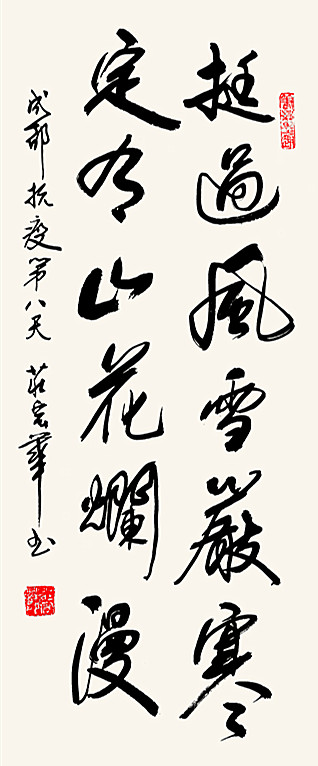 挺過風雪嚴寒
定有山花爛漫
成都抗疫第八天 莊宏華书